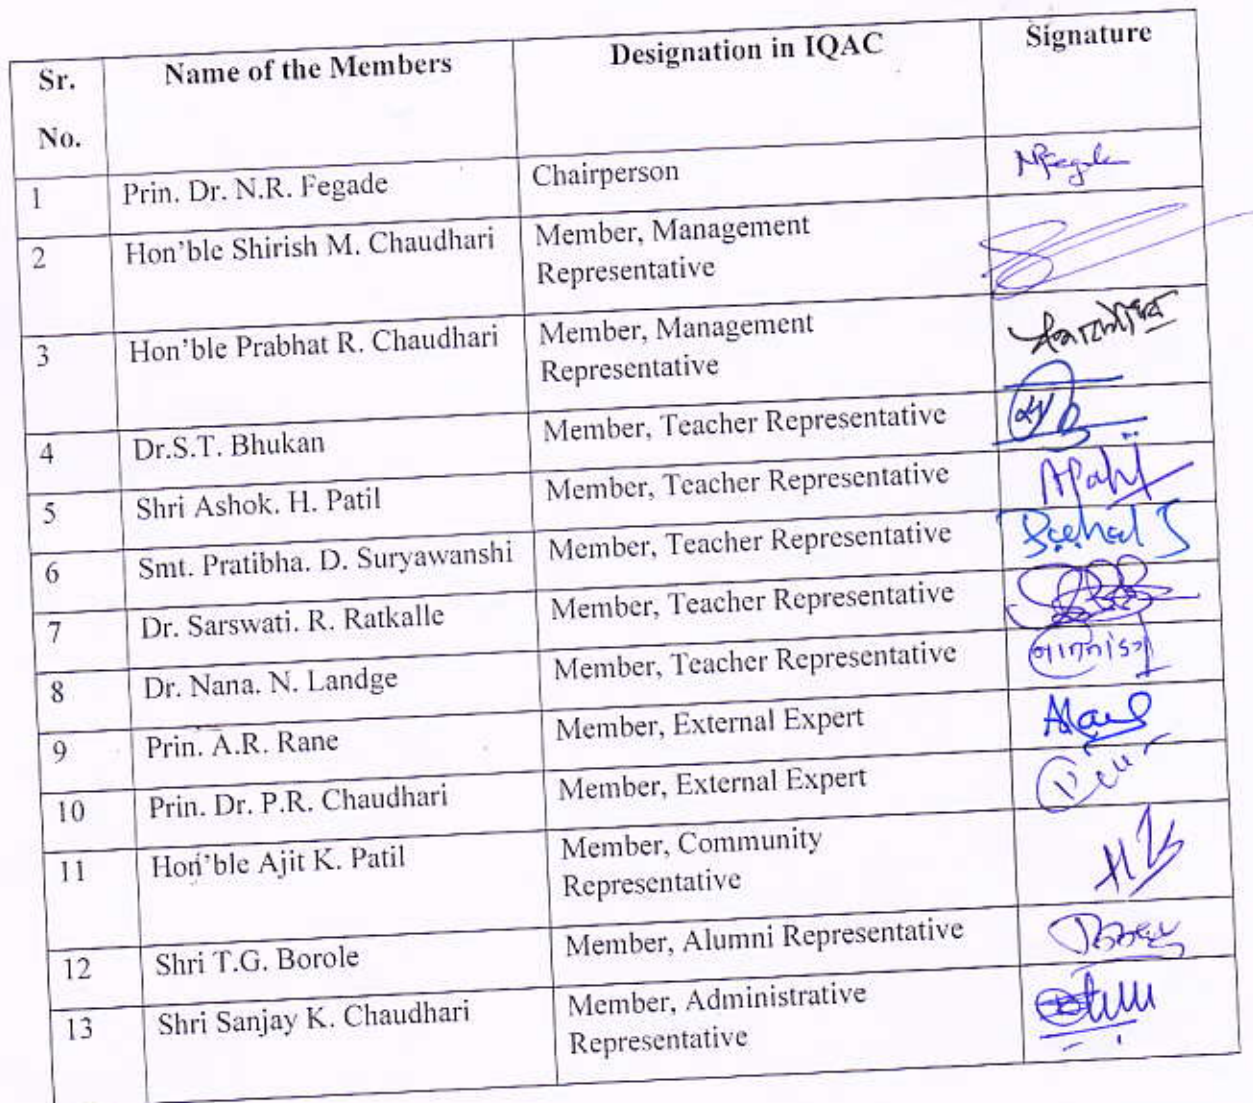 Sr. No. Name of the Members Designation in IQAC Signature
1 Prin. Dr. N.R. Fegade Chairperson
2 Hon'ble Shirish M. Chaudhari Member, Management
Representative
3 Hon'ble Prabhat R. Chaudhari Member, Management
Representative
4 Dr.S.T. Bhukan Member, Teacher Representative
5 Shri Ashok. H. Patil Member, Teacher Representative
6 Smt. Pratibha. D. Suryawanshi Member, Teacher Representative
7 Dr. Sarswati. R. Ratkalle Member, Teacher Representative
8 Dr. Nana. N. Landge Member, Teacher Representative
9 Prin. A.R. Rane Member, External Expert
10 Prin. Dr. P.R. Chaudhari Member, External Expert
11 Hon'ble Ajit K. Patil Member, Community
Representative
12 Shri T.G. Borole Member, Alumni Representative
13 Shri Sanjay K. Chaudhari Member, Administrative
Representative